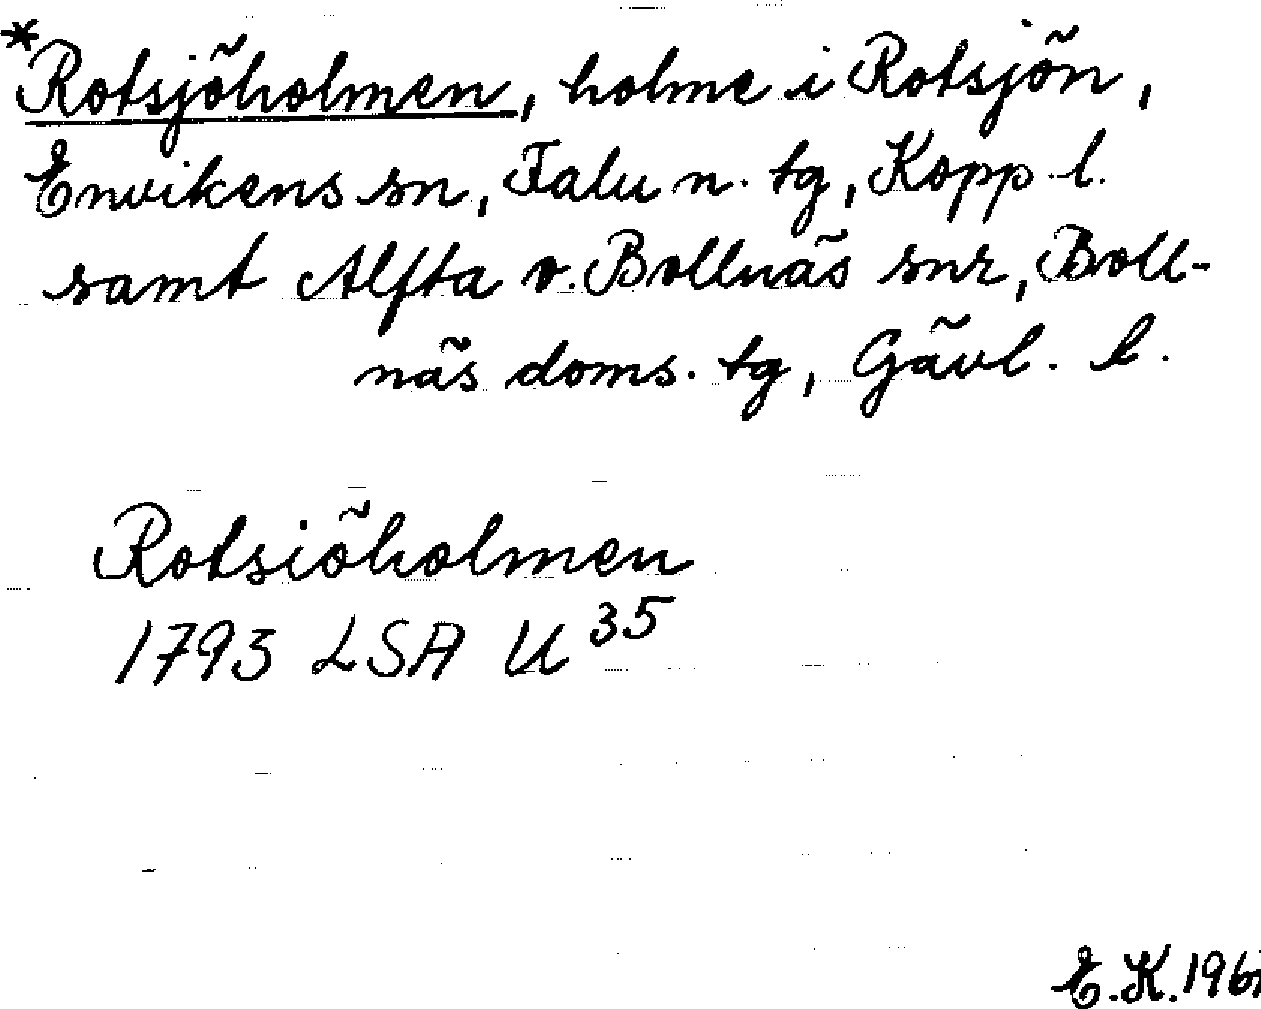 *Rotsjöholmen, holme i Rotsjön,
Envikens sn, Falu n. tg, Kopp. l.
samt Alfta o. Bollnäs snr, Boll-
näs doms. tg, Gävl. l.
Rotsiöholmen
1793 LSA U 35
E.K. 1961